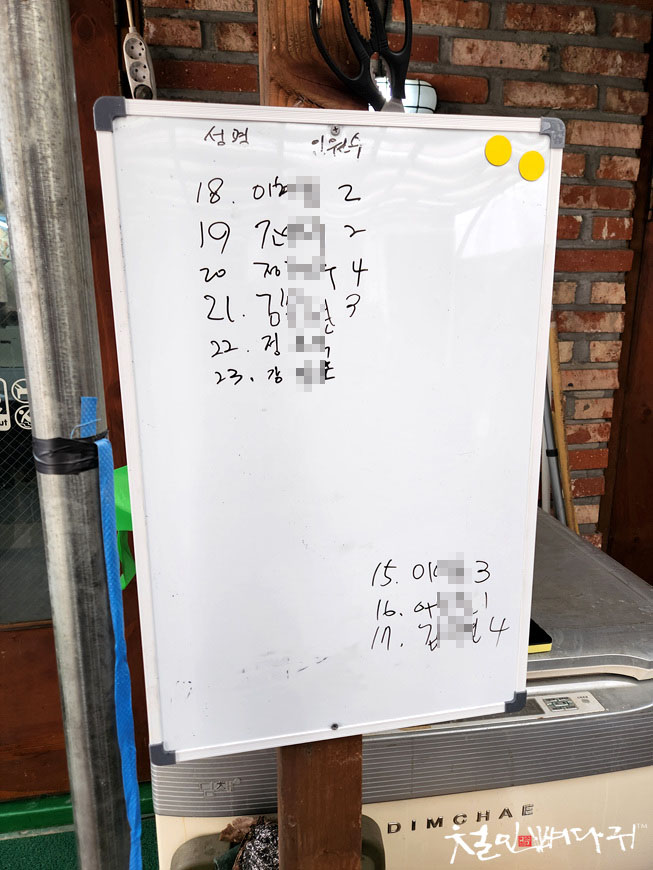 성명 인원수
18. 이 2
19 2
20 정 수 4
21. 김 3
22. 정
23. 강
15. 이 3
16. 1
17. 김 4
DIMCHAE
철인뼈다귀™